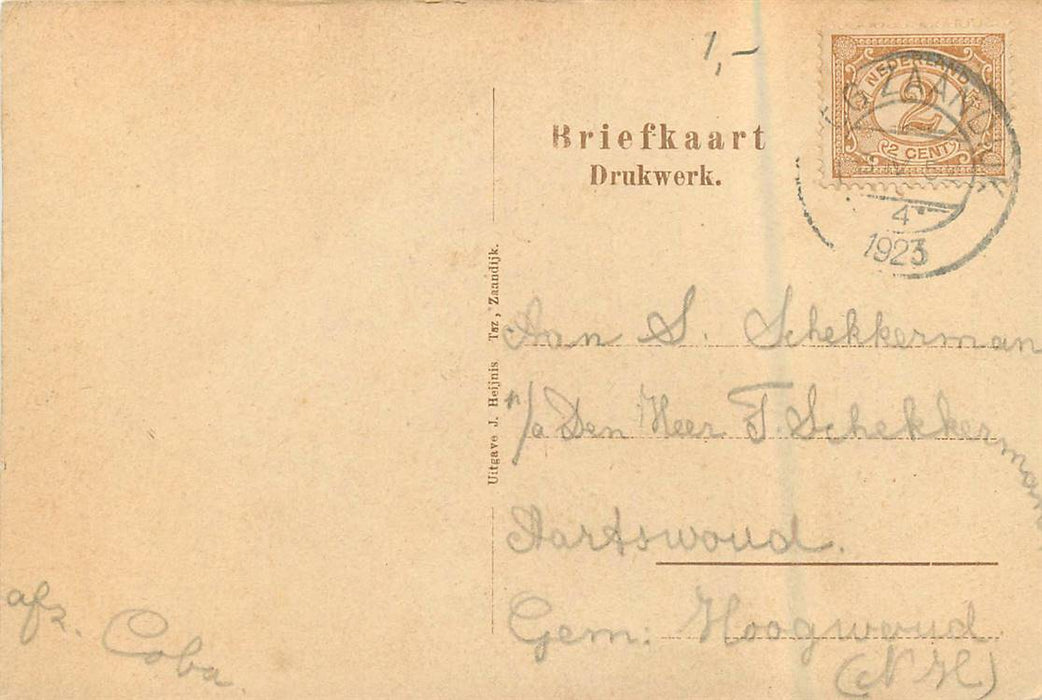 1,-
NEDERLAND
2
2 CENT
ZAANDIJK
4
1923
Briefkaart
Drukwerk.
Uitgave J. Heijnis Tsz, Zaandijk.
Aan S. Schekkerman
p/a Den Heer T. Schekkerman
Aartswoud.
Gem: Hoogwoud
(N H)
afz. Coba